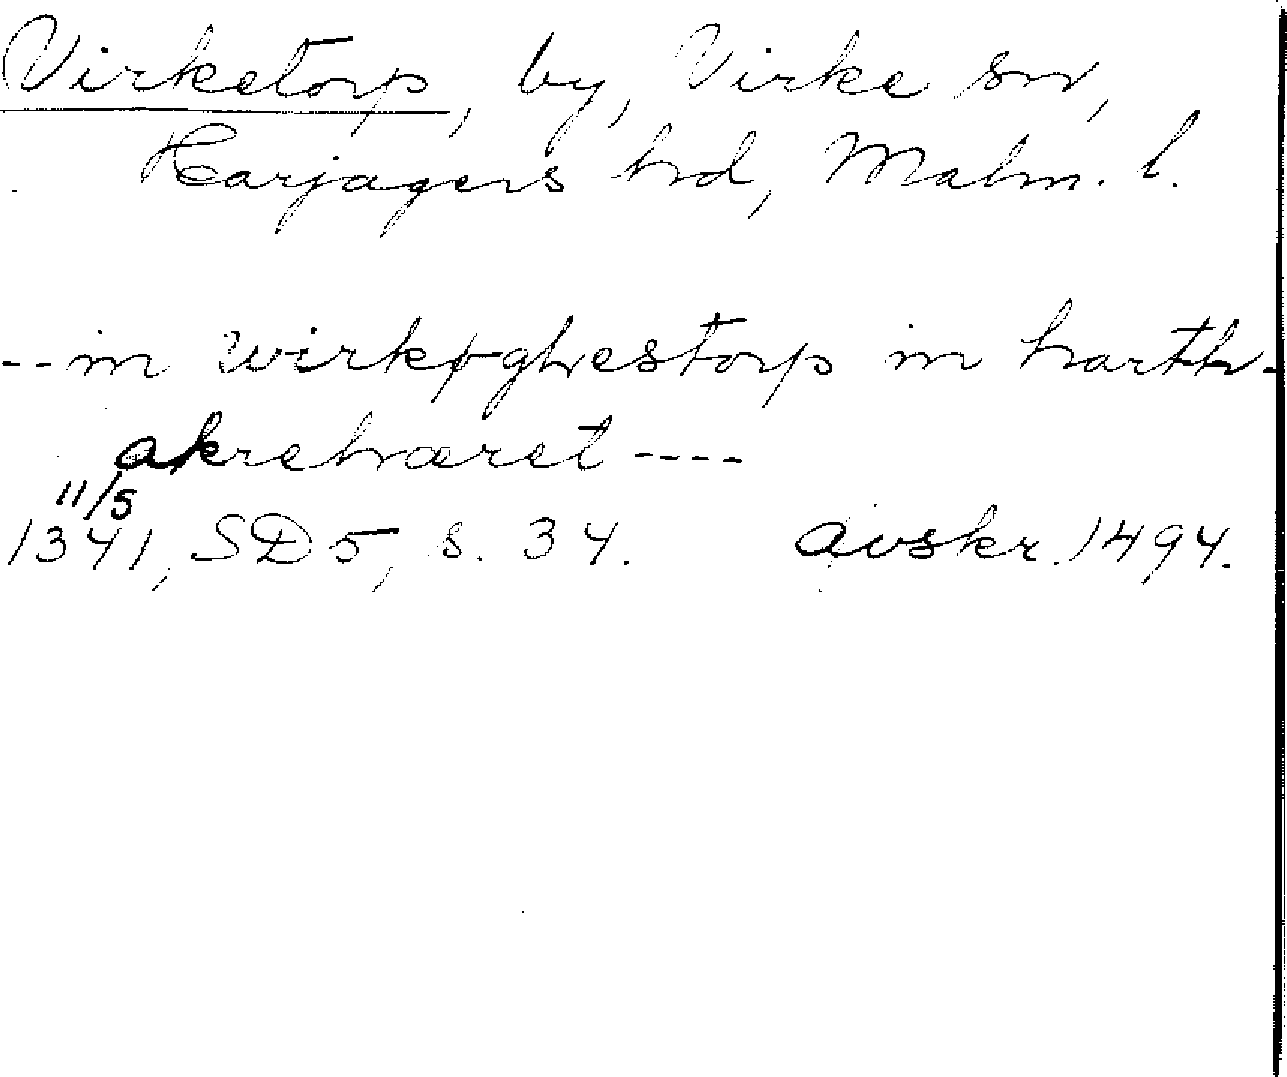 Virketorp, by, Virke sn,
Harjagers hd, Malm. l.
--in wirkøghestorp in harth-
akrehæret ----
11/5
1341, SD 5, s. 34. avskr. 1494.